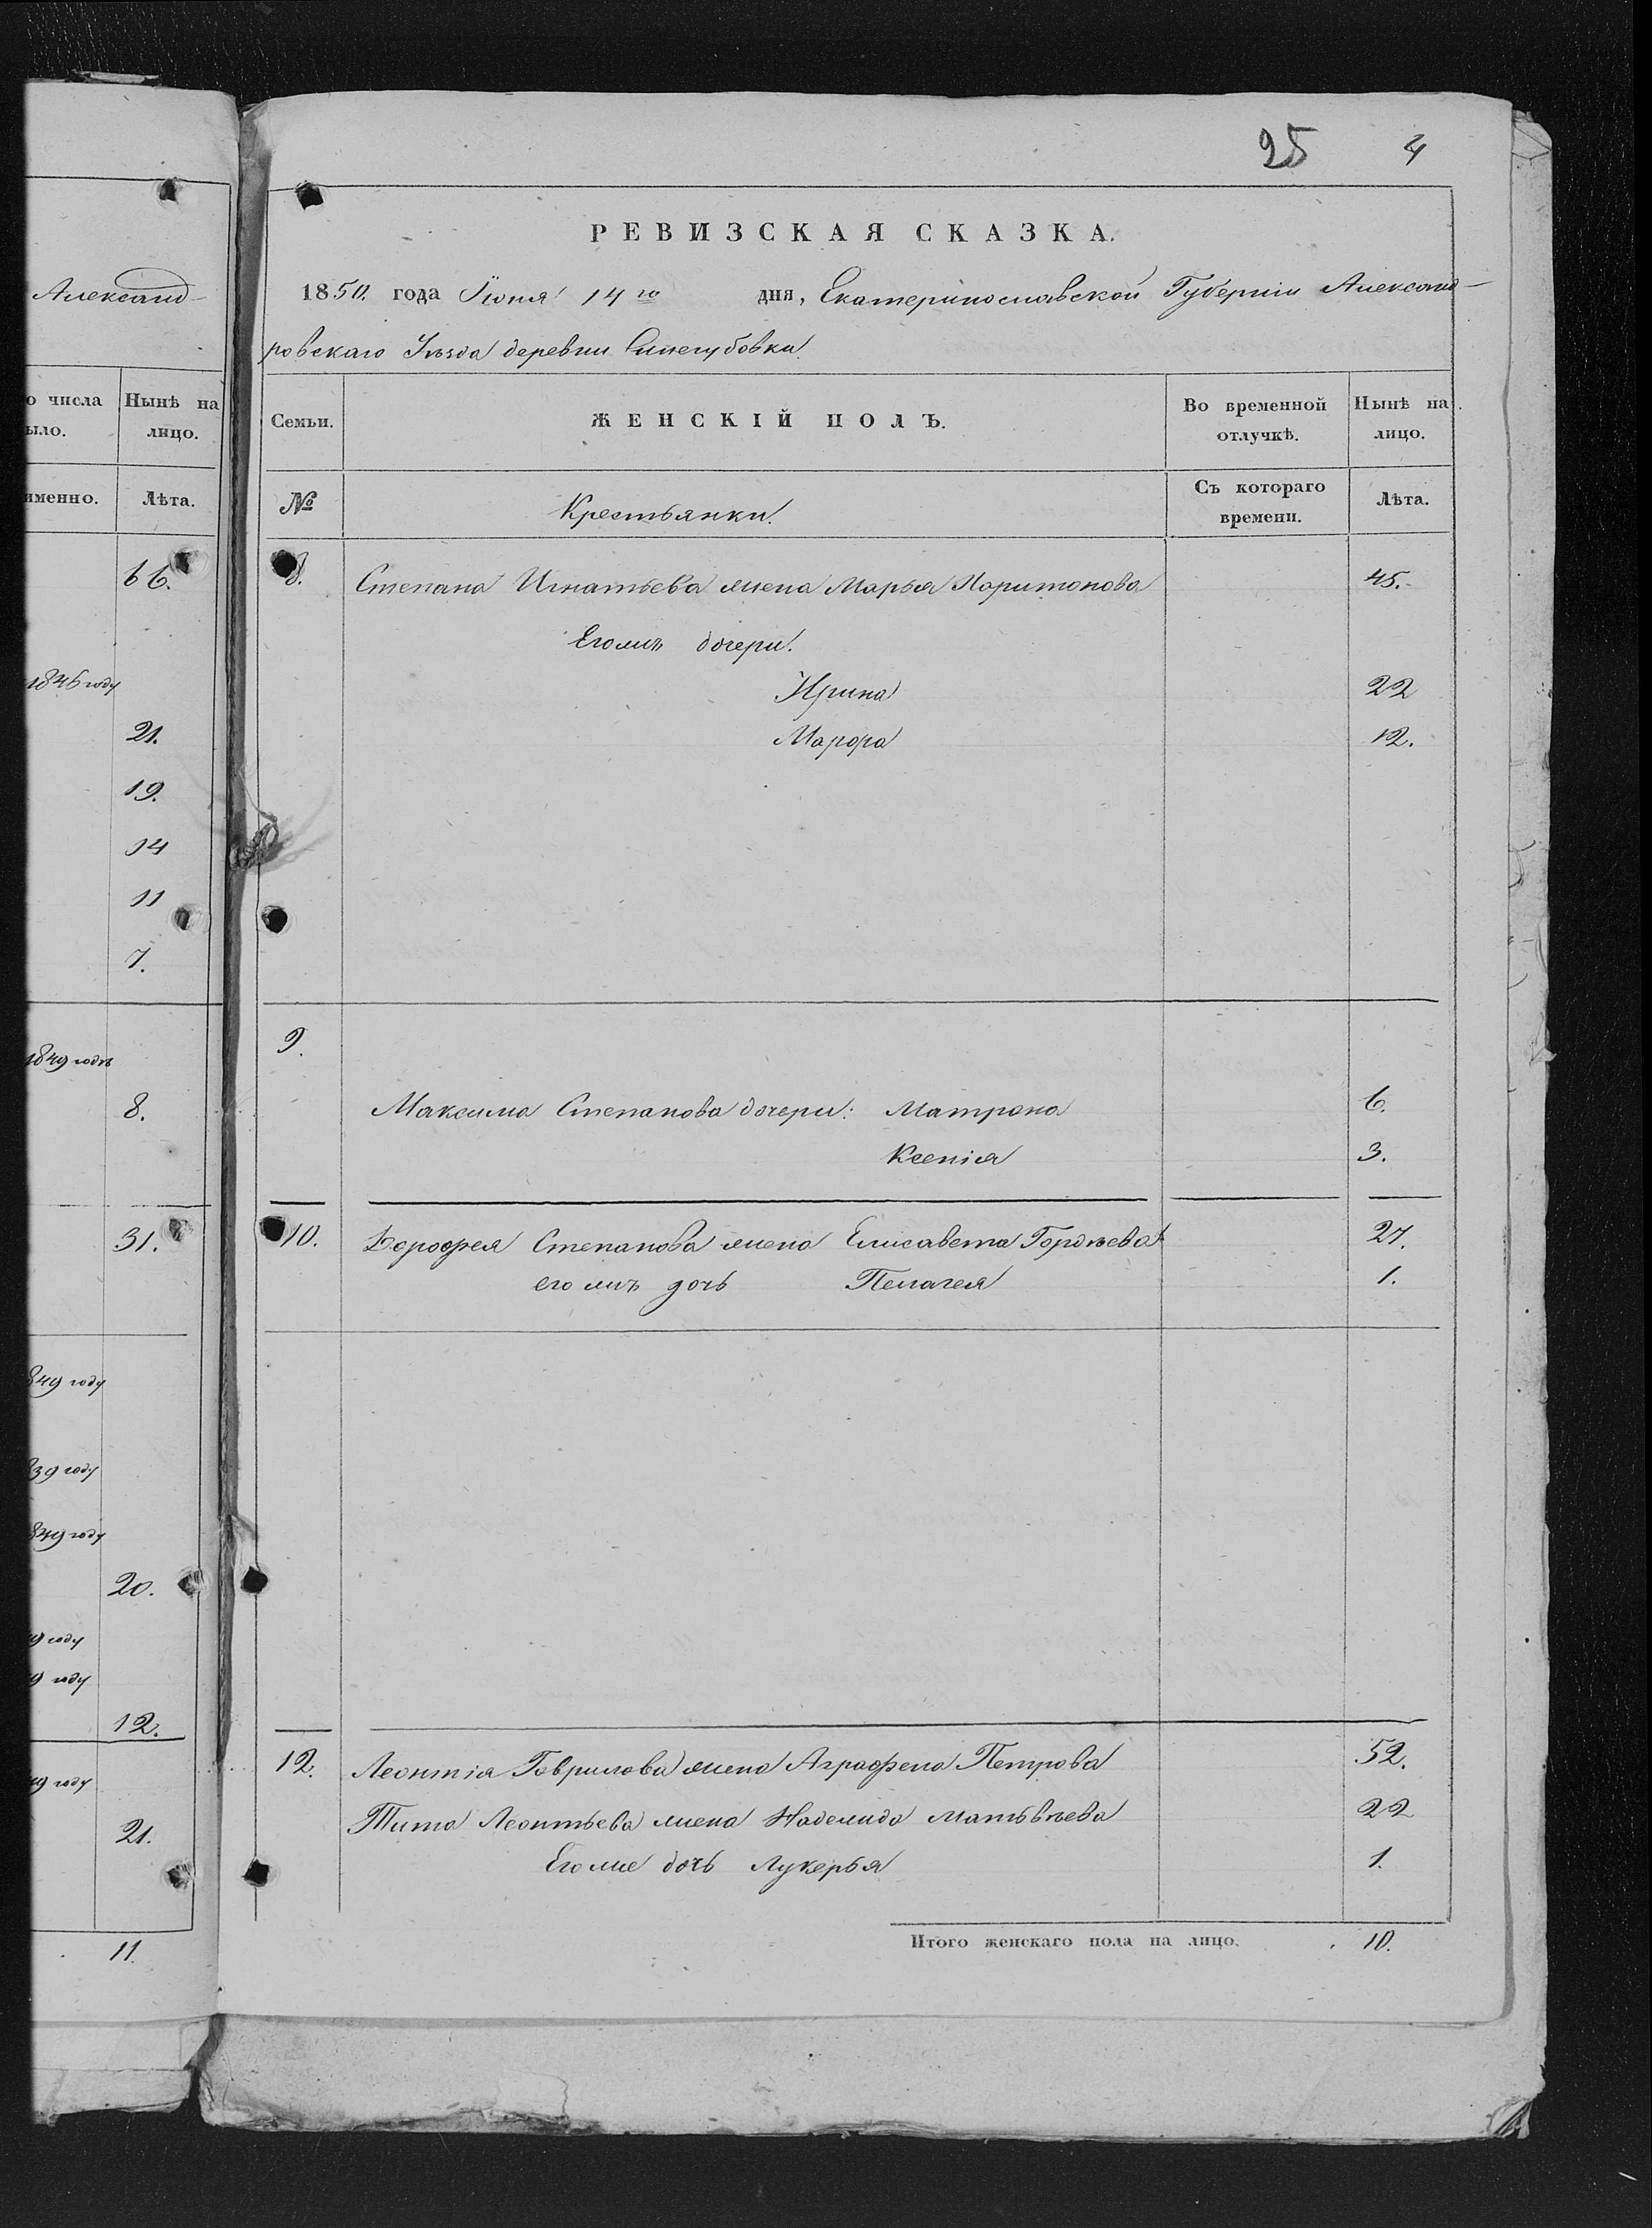 Александ-
о числа Нынѣ на
ыло. лицо.
именно. Лѣта.
66.
1846 году
21.
19.
14
11
7.
1849 годѣ
8.
31.
849 году
839 году
849 году
20.
9 году
9 году
12.
49 году
21.
11.
25 4
РЕВИЗСКАЯ СКАЗКА.
1850. года Іюня 14го дня, Екатеринославской Губерніи Александ-
ровскаго Уѣзда деревни Синегубовки
Семьи. ЖЕНСКІЙ ПОЛЪ. Во временной отлучкѣ. Нынѣ на лицо.
№ Крестьянки. Съ котораго времени. Лѣта.
8. Степана Игнатьева жена Марья Харитонова 45.
Егожъ дочери.
Ирина 22
Марфа 12.
9.
Максима Степанова дочери: Матрона 6.
Ксенія 3.
10. Дорофея Степанова жена Елисавета Гордѣева 27.
его жъ дочь Пелагея 1.
12. Леонтія Гаврилова жена Аграфена Петрова 52.
Тита Леонтьева жена Надежда Матьвѣева 22
Его же дочь Лукерья 1.
Итого женскаго пола на лицо. 10.